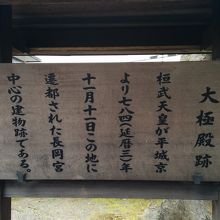 大極殿跡
桓武天皇が平城京
より七八四(延暦三)年
十一月十一日この地に
遷都された長岡宮
中心の建物跡である。